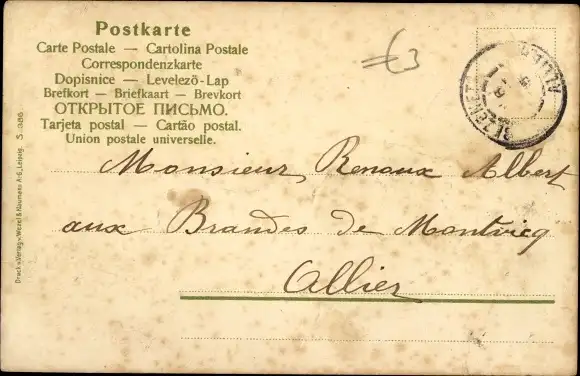 Postkarte
Carte Postale — Cartolina Postale
Correspondenzkarte
Dopisnice — Levelezö-Lap
Brefkort — Briefkaart — Brevkort
ОТКРЫТОЕ ПИСЬМО.
Tarjeta postal — Cartão postal.
Union postale universelle.
3
BEZENET
ALLIER
Monsieur Renaux Albert
aux Brandes de Montvicq
Allier
Druck u. Verlag v. Wezel & Naumann A.-G., Leipzig. S. 386